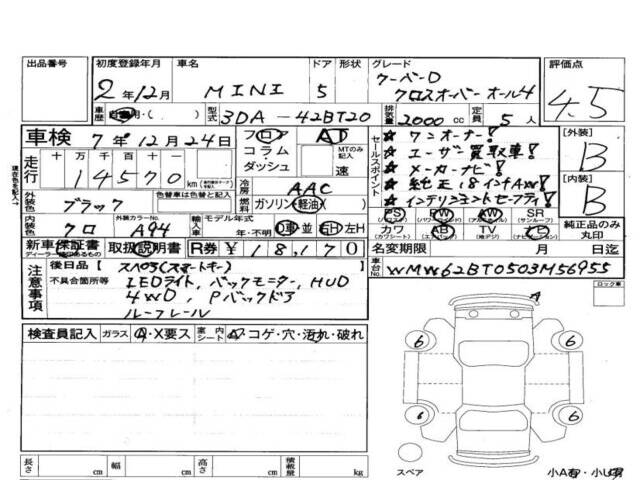 出品番号
初度登録年月 車名 ドア 形状 グレード 評価点
2年12月 MINI 5 クーパーD クロスオーバー オール4 4.5
車歴 自家用・( ) 型式 3DA-42BT20 排気量 2000 cc 定員 5人
車検 7年12月24日 フロア AT
走行 十万 万 千 百 十 一 14570 km コラム ダッシュ MTのみ記入 速
現車色を記入→
外装色 ブラック 色替車は色替と記入 冷房 AAC
燃料 ガソリン・軽油・( )
内装色 クロ 外装カラーNo. A94 輸入車 モデル年式 年・不明 D車・並 右H・左H
新車保証書 ディーラー確認印のあるもの 取扱説明書 R券 ¥18,170
セールスポイント
★ワンオーナー!
★ユーザー買取車!
★メーカーナビ!
★純正18インチAW!
★インテリジェントセーフティ!
[外装] B
[内装] B
PS PW AW SR (サンルーフ)
カワ (カワシート) AB (エアバック) TV (地デジ) ナビ (ナビゲーション)
純正品のみ丸印
名変期限 月 日迄
車台No. WMW62BT0503M56955
注意事項
後日品 ( スペ03(スマートキー) )
不具合箇所等 LEDライト、バックモニター、HUD
4WD、Pバックドア
ルーフレール
ロック車
検査員記入 ガラス A・X要ス 室内シート A・コゲ・穴・汚れ・破れ
A
6 6
6 6
スペア
長さ cm 幅 cm 高さ cm 積載量 kg
小A有・小U有